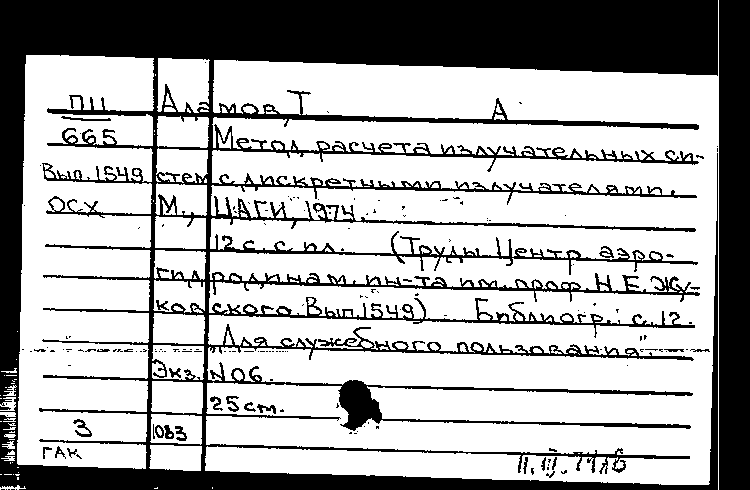 ПII Адамов, Т А
665 Метод расчета излучательных си-
Вып. 1549 стем с дискретными излучателями.
ОСХ М., ЦАГИ, 1974.
12 с. с пл. (Труды Центр. аэро-
гидродинам. ин-та им. проф. Н. Е. Жу-
ковского. Вып. 1549) Библиогр.: с. 12.
"Для служебного пользования".
Экз. N 06.
25 см.
3 1083
ГАК